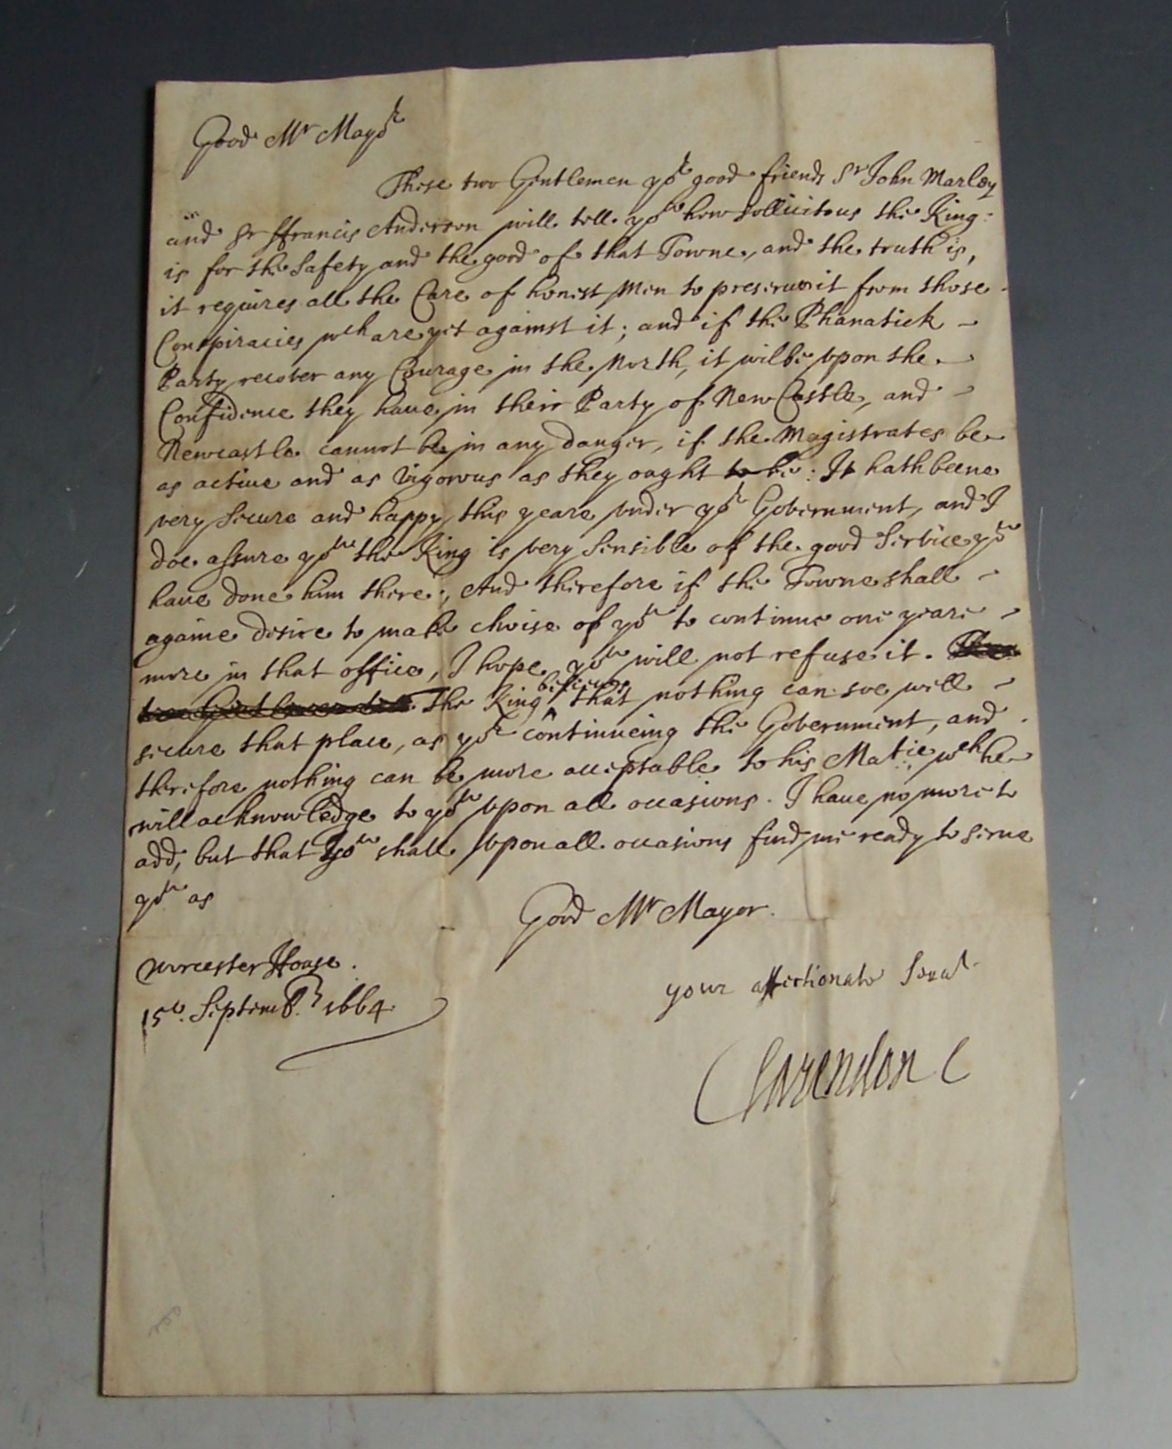 Good Mr Mayor
These two Gentlemen yor good friends Sr John Marley
and Sr ffrancis Anderson will tell you how sollicitous the King
is for the Safety and the good of that Towne, and the truth is,
it requires all the Care of honest Men to preserue it from those
Conspiracies wch are yet against it; and if the Phanatick
Party recover any Courage in the North, it wilbe vpon the
Confidence they haue in their Party of New Castle, and
Newcastle cannot be in any danger, if the Magistrates be
as actiue and as vigorous as they ought to be: It hath beene
very secure and happy this yeare vnder yor Government, and I
doe assure you the King is very sensible of the good Service you
haue done him there; And therefore if the Towne shall
againe desire to make choise of you to continue one yeare
more in that office, I hope you will not refuse it.
The King believes that nothing can soe well
secure that place, as yor continueing the Government, and
therefore nothing can be more acceptable to his Matie wch he
will acknowledge to you vpon all occasions. I haue no more to
add, but that you shall vpon all occasions find me ready to serue
you as
Good Mr Mayor.
Worcester House.
15th Septemb. 1664
your affectionate Seruat
Clarendon C